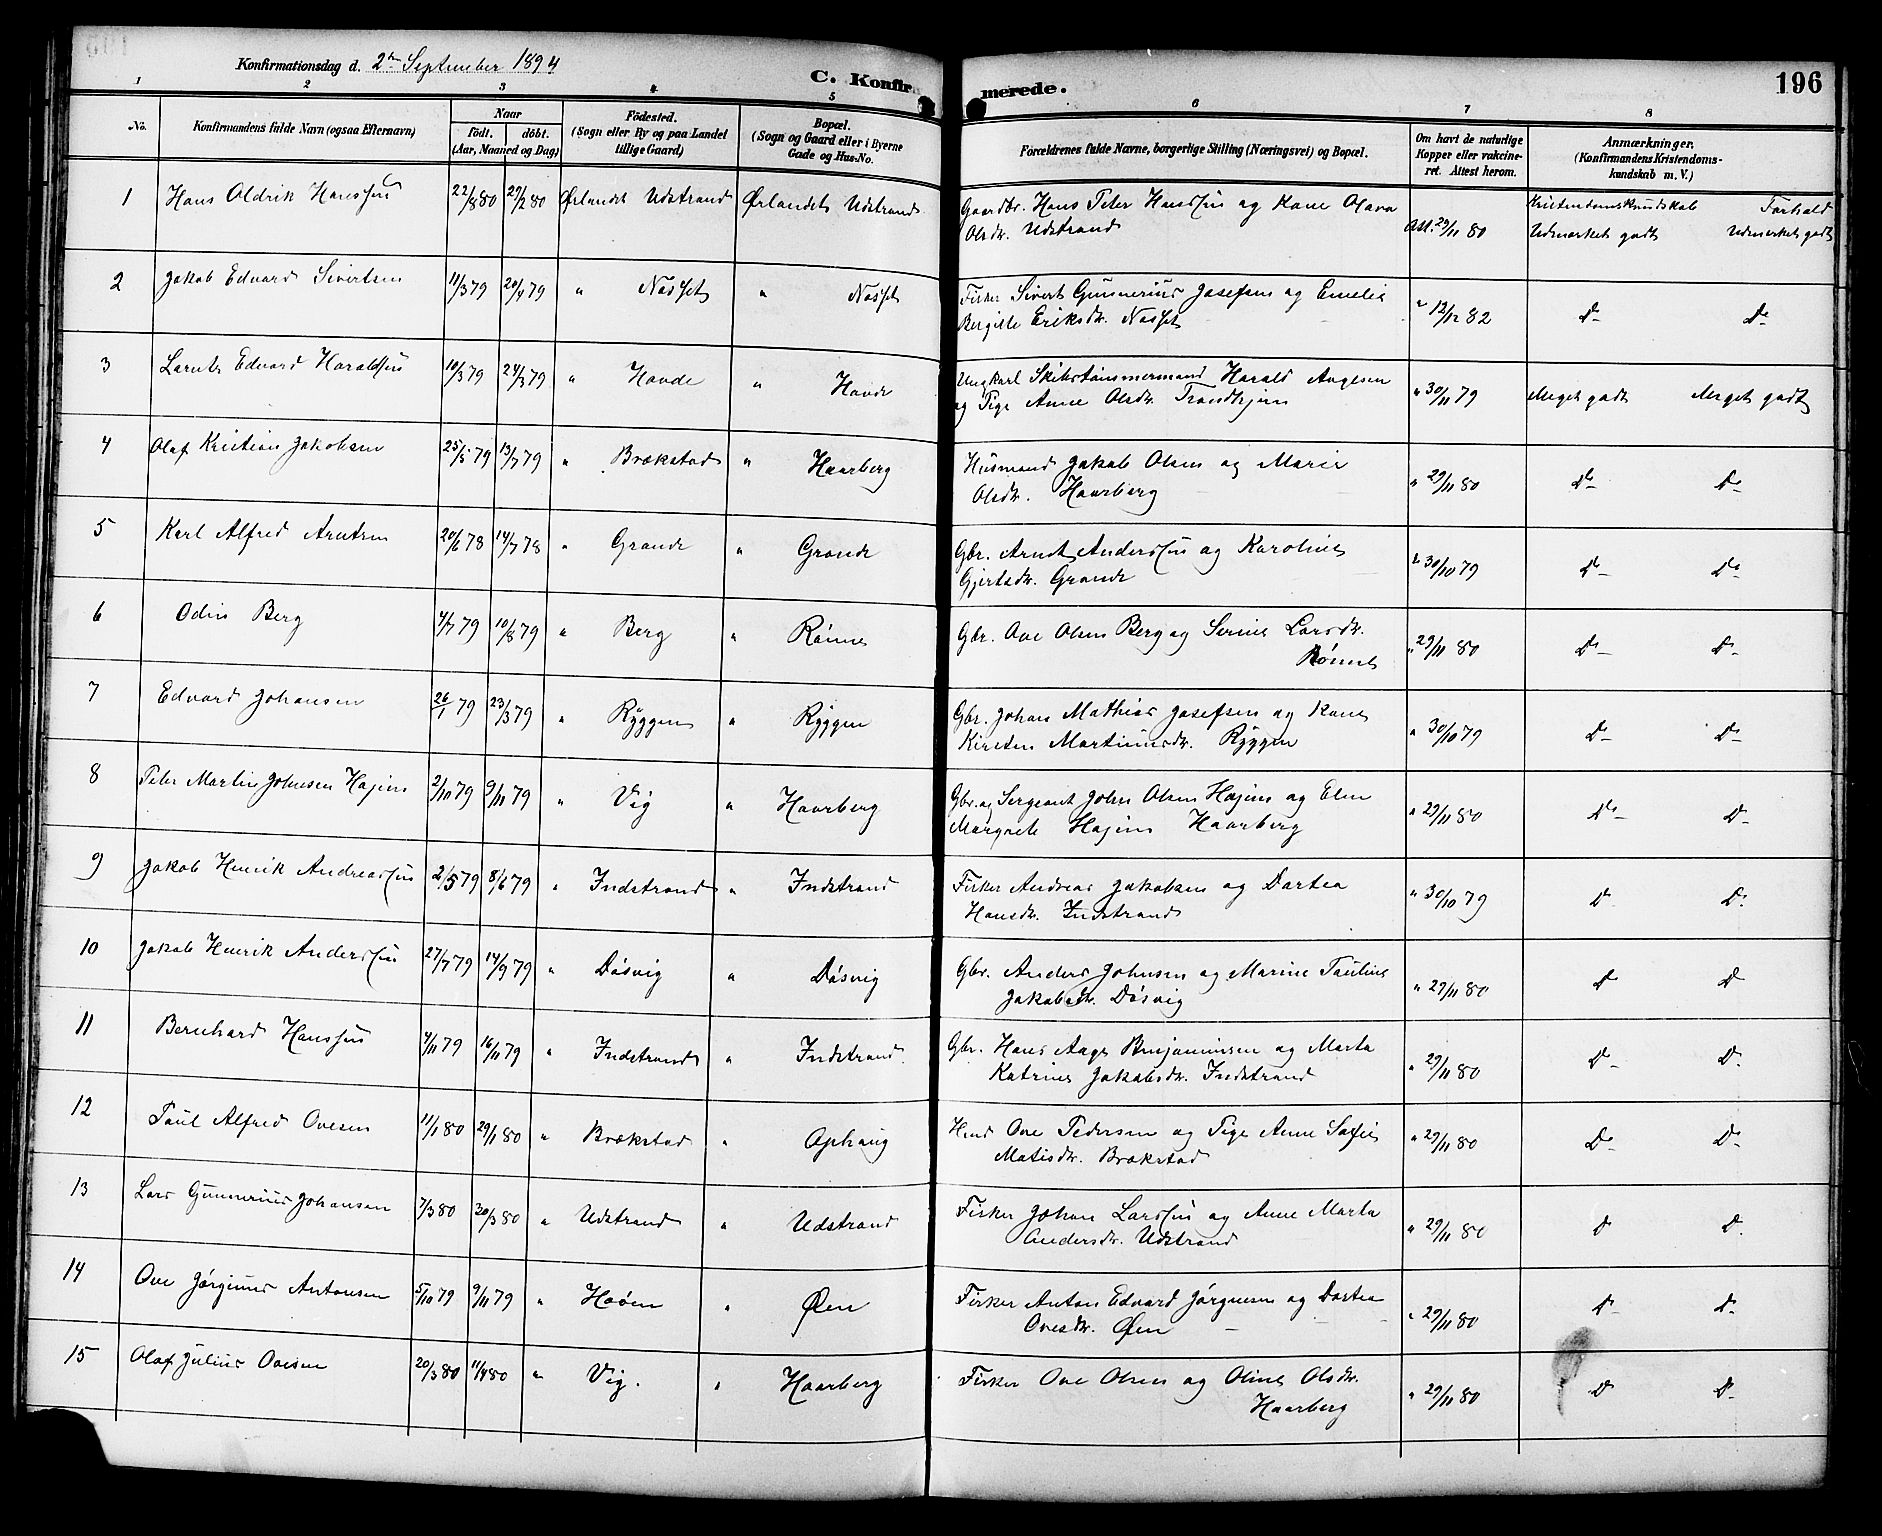 Konfirmationsdag d. 2den September 1894
C. Konfirmerede.
196
1 2 3 4 5 6 7 8
No. Konfirmandens fulde Navn (ogsaa Efternavn) Naar født. døbt. (Aar, Maaned og Dag) Fødested. (Sogn eller By og paa Landet tillige Gaard) Bopæl. (Sogn og Gaard eller i Byerne Gade og Hus-No. Forældrenes fulde Navne, borgerlige Stilling (Næringsvei) og Bopæl. Om havt de naturlige Kopper eller vakcineret. Attest herom. Anmærkninger, (Konfirmandens Kristendomskundskab m. V.)
1 Hans Oldrik Hanssen 22/8 80 29/2 80 Ørlandet Udstrand Ørlandets Udstrand Gaardbr. Hans Peter Hanssen og Kane Olava Att. 29/11 80 Kristendomskundskab Forhold
Olsdr. Udstrand Udmærket godt Udmerket godt
2 Jakob Edvard Sivertsen 11/3 79 20/4 79 " Nosset " Nosset Fisker Sivert Gunnerius Josefsen og Emelie " 12/12 82 Do Do
Bergitte Eriksdr. Nosset
3 Larnts Edvard Haraldsen 10/3 79 24/3 79 " Hovde " Hovde Ungkarl Skibstømmermand Harald Aagesen " 30/11 79 Meget godt Meget godt
og Pige Anne Olsdr. Trondhjem
4 Olaf Kristian Jakobsen 25/5 79 13/7 79 " Brækstad " Haarberg Husmand Jakob Olsen og Marie " 29/11 80 Do Do
Olsdr. Haarberg
5 Karl Alfred Arntsen 20/6 78 14/7 78 " Grande " Grande Gbr. Arndt Anderssen og Karoline " 30/10 79 Do Do
Gjertsdr. Grande
6 Odin Berg 4/7 79 10/8 79 " Berg " Rønne Gbr. Ove Olsen Berg og Serine Larsdr. " 29/11 80 Do Do
Rønne
7 Edvard Johansen 26/1 79 23/3 79 " Ryggen " Ryggen Gbr. Johan Mathias Josefsen og Kane " 30/10 79 Do Do
Kirsten Martinusdr. Ryggen
8 Peter Martin Johnsen Hojem 2/10 79 9/11 79 " Vig " Haarberg Gbr. og Sergeant John Olsen Hojem og Elen " 29/11 80 Do Do
Margrete Hojem Haarberg
9 Jakob Henrik Andreassen 2/5 79 8/6 79 " Indstrand " Indstrand Fisker Andreas Jakobsen og Dortea " 30/10 79 Do Do
Hansdr. Indstrand
10 Jakob Henrik Anderssen 27/7 79 14/9 79 " Døsvig " Døsvig Gbr. Anders Johnsen og Marine Pauline " 29/11 80 Do Do
Jakobsdr. Døsvig
11 Bernhard Hanssen 4/11 79 16/11 79 " Indstrand " Indstrand Gbr. Hans Aage Benjaminsen og Marta " 29/11 80 Do Do
Katrine Jakobsdr. Indstrand
12 Paul Alfred Ovesen 11/1 80 29/1 80 " Brækstad " Ophaug Hmd Ove Pedersen og Pige Anne Sofie " 29/11 80 Do Do
Matisdr. Brækstad
13 Lars Gunnerius Johansen 7/3 80 30/3 80 " Udstrand " Udstrand Fisker Johan Larssen og Anne Marta " 29/11 80 Do Do
Andersdr. Udstrand
14 Ove Jørginus Antonsen 5/10 79 9/11 79 " Hoøen " Øen Fisker Anton Edvard Jørgensen og Dortea " 29/11 80 Do Do
Ovesdr. Øen
15 Olaf Julius Ovesen 20/3 80 11/4 80 " Vig. " Haarberg Fisker Ove Olsen og Oline Olsdr. " 29/11 80 Do Do
Haarberg